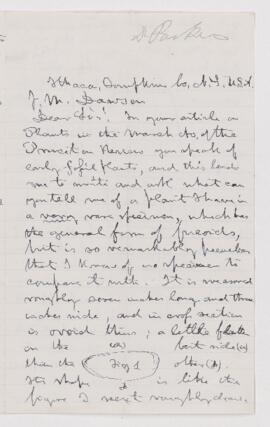 Dr Parker
Ithaca, Tompkins Co, N.Y. U.S.A.
J. W. Dawson
Dear Sir! In your article on
Plants in the March No. of the
Princeton Review you speak of
early Fossil Plants, and this leads
me to write and ask what can
you tell me of a plant I have in
a very rare specimen, which has
the general form of fucoids,
but is so remarkably peculiar
that I know of no specimen to
compare it with. It is measured
roughly seven inches long and three
inches wide, and in cross section
is ovoid thus; a little flatter
on the (a) side (a)
than the Fig 1 other (b).
Its shape is like the
figure I next roughly draw